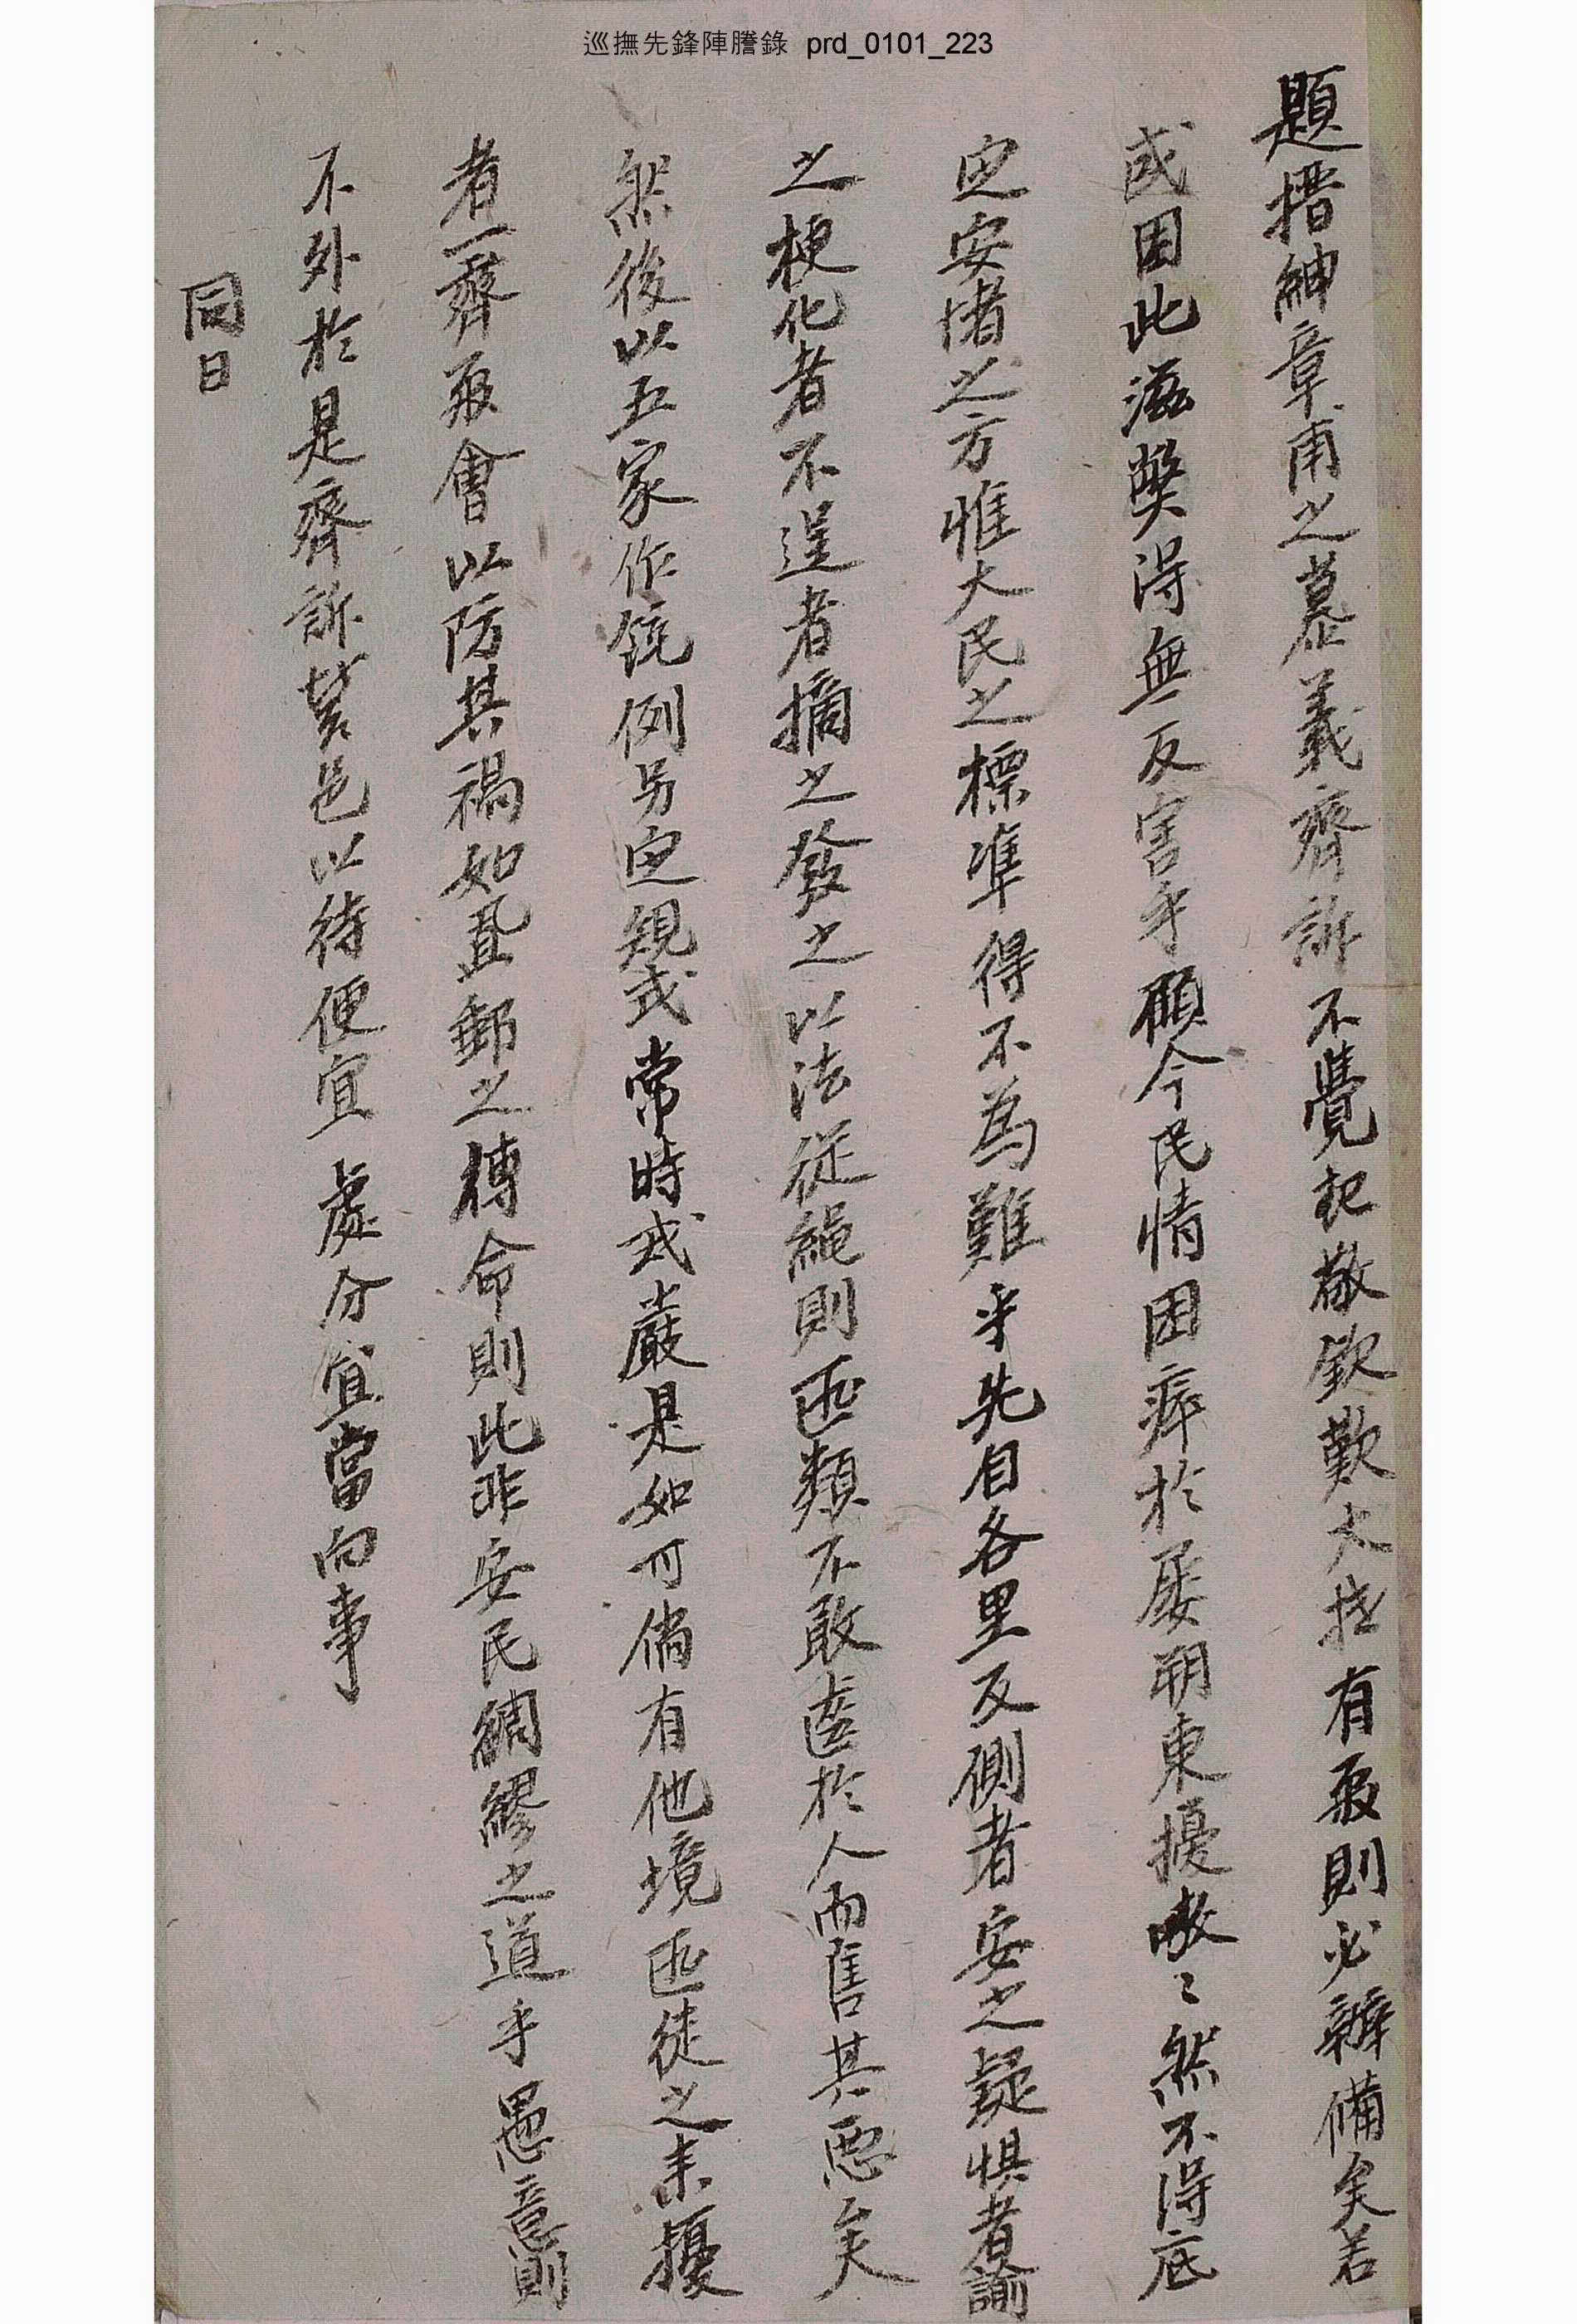 巡撫先鋒陣謄錄 prd_0101_223
題搢紳章甫之慕義齊訴不覺起敬欽歎大抵有取則必辦備矣若
或因此滋獘得無反害乎顧今民情困瘁於屡朔東擾嗷〻然不得底
定安堵之方惟大民之標準得不為難乎先自各里反側者安之疑惧者諭
之梗化者不逞者摘之發之以法從繩則匪類不敢齒於人而售其惡矣
然後以五家作統例另定規式常時戒嚴是如可倘有他境匪徒之来擾
者一齊取會以防其禍如置郵之傳命則此非安民綢繆之道乎愚意則
不外於是齊訴營邑以待便宜處分宜當向事
同日